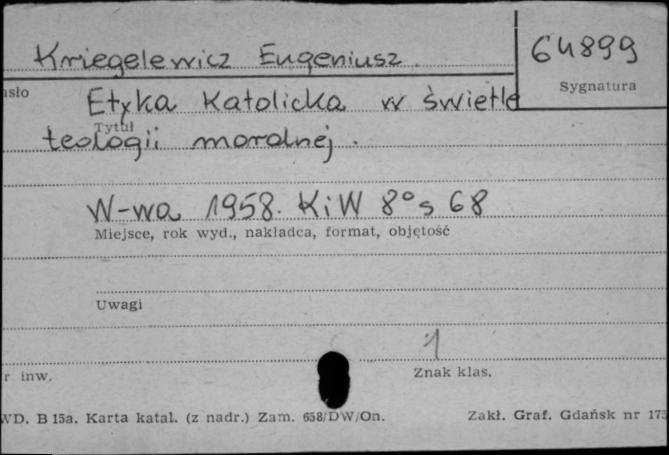 Kriegelewicz Eugeniusz. 64899
asło Sygnatura
Etyka Katolicka w świetle
Tytuł
teologii moralnej.
W-wa 1958. KiW 8° s 68
Miejsce, rok wyd., nakładca, format, objętość
Uwagi
1
r inw. Znak klas.
WD. B 15a. Karta katal. (z nadr.) Zam. 658/DW/On. Zakł. Graf. Gdańsk nr 175